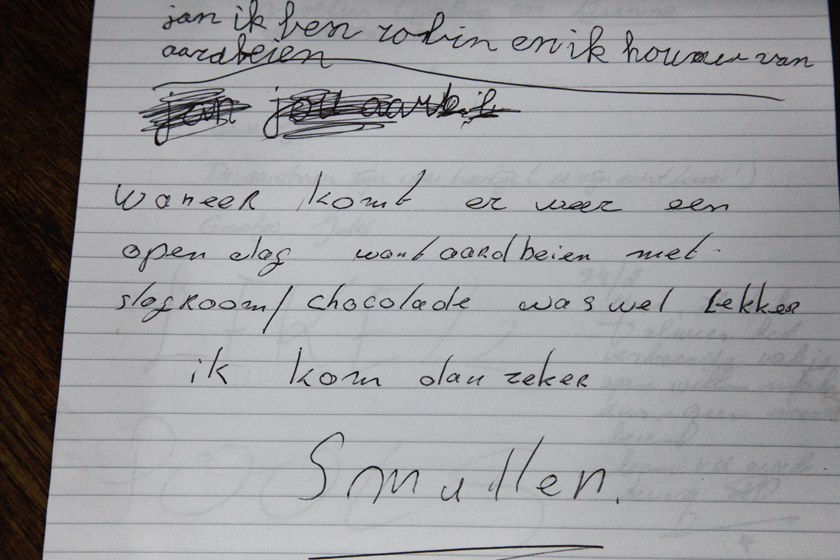 jan ik ben robin en ik hou van
aardbeien
jan jou aarb
waneer komt er weer een
open dag want aardbeien met
slagroom/ chocolade was wel lekker
ik kom dan zeker
Smullen.